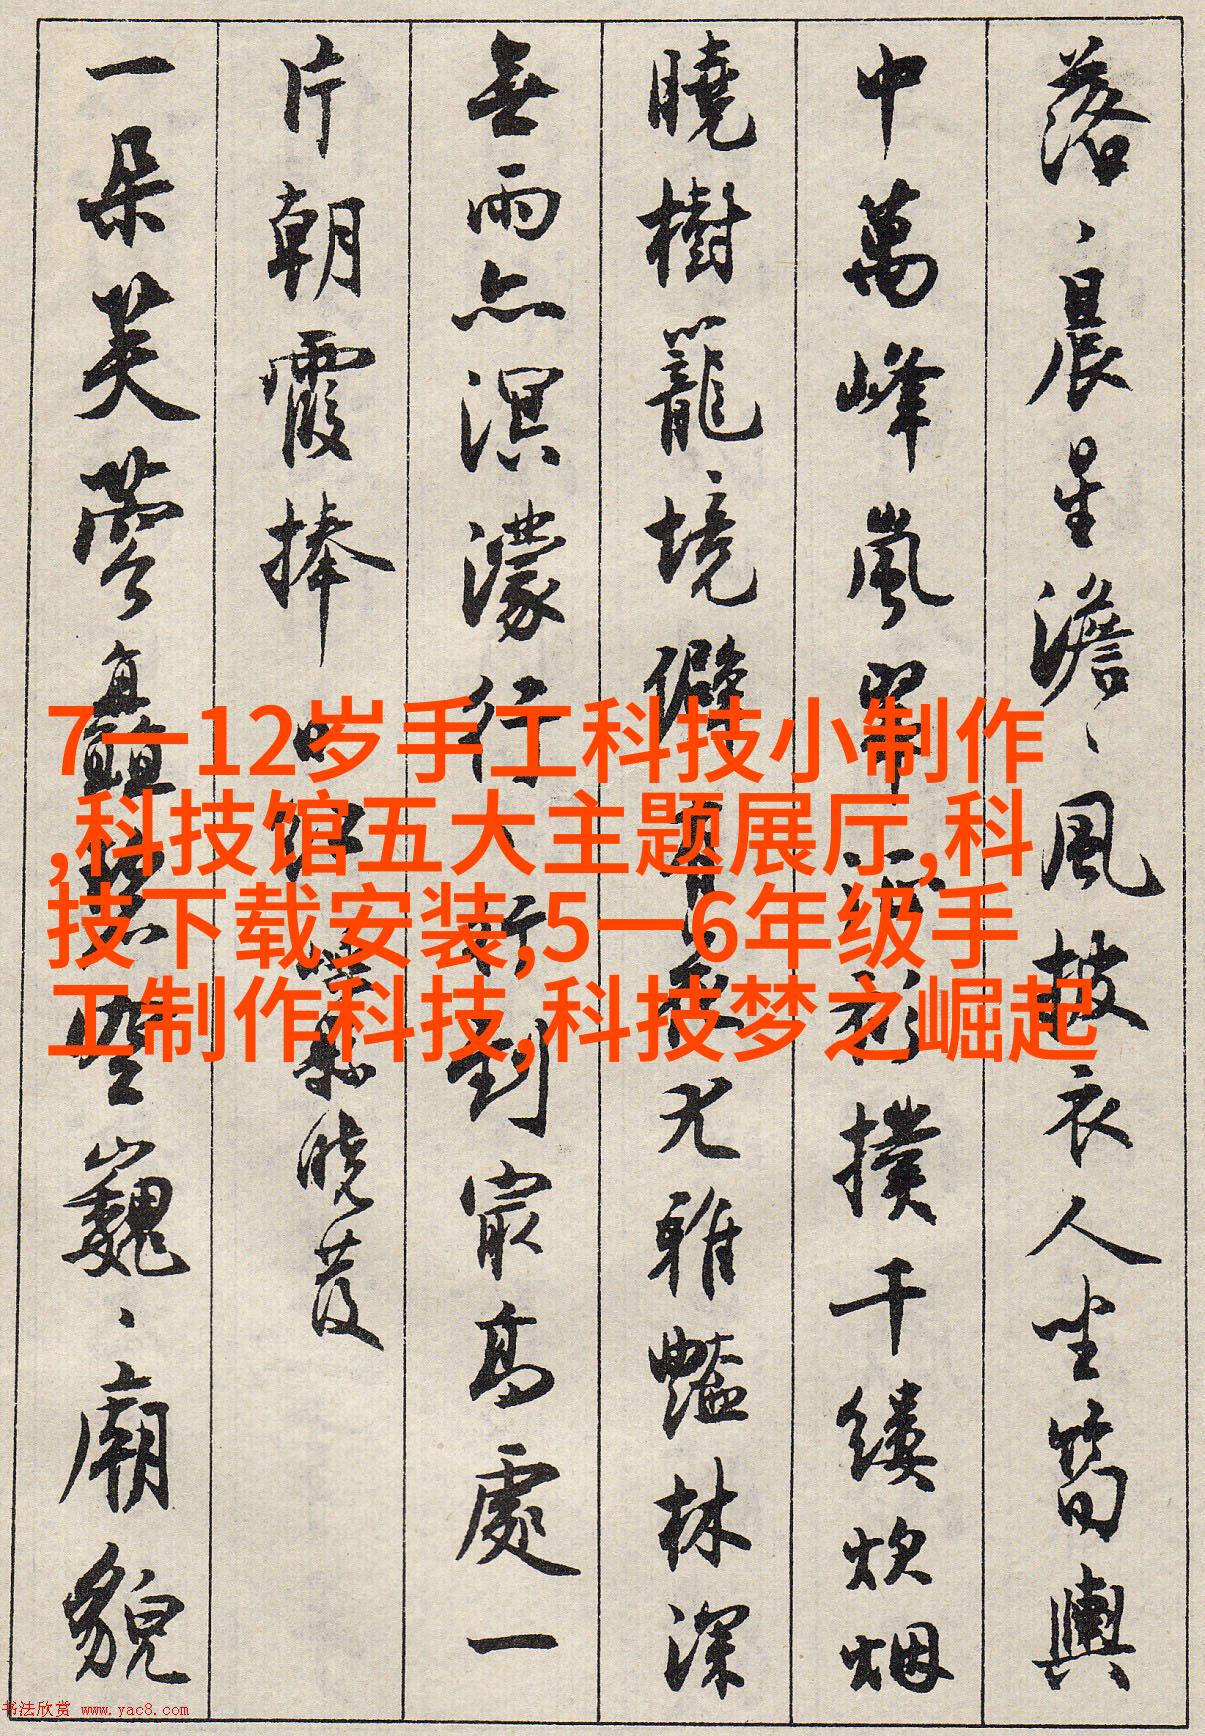 落、晨星澹、風披衣人坐筍輿
中萬峰嵐翠衫撲千縷炊烟
曉樹籠境僻尤雅豔林深
無雨亦溟濛行、漸到最高處一
片朝霞捧日曉發
一朵芙蓉直矗碧空巍、廟貌
7一12岁手工科技小制作
,科技馆五大主题展厅,科
技下载安装,5一6年级手
工制作科技,科技梦之崛起
书法欣赏 www.yac8.com